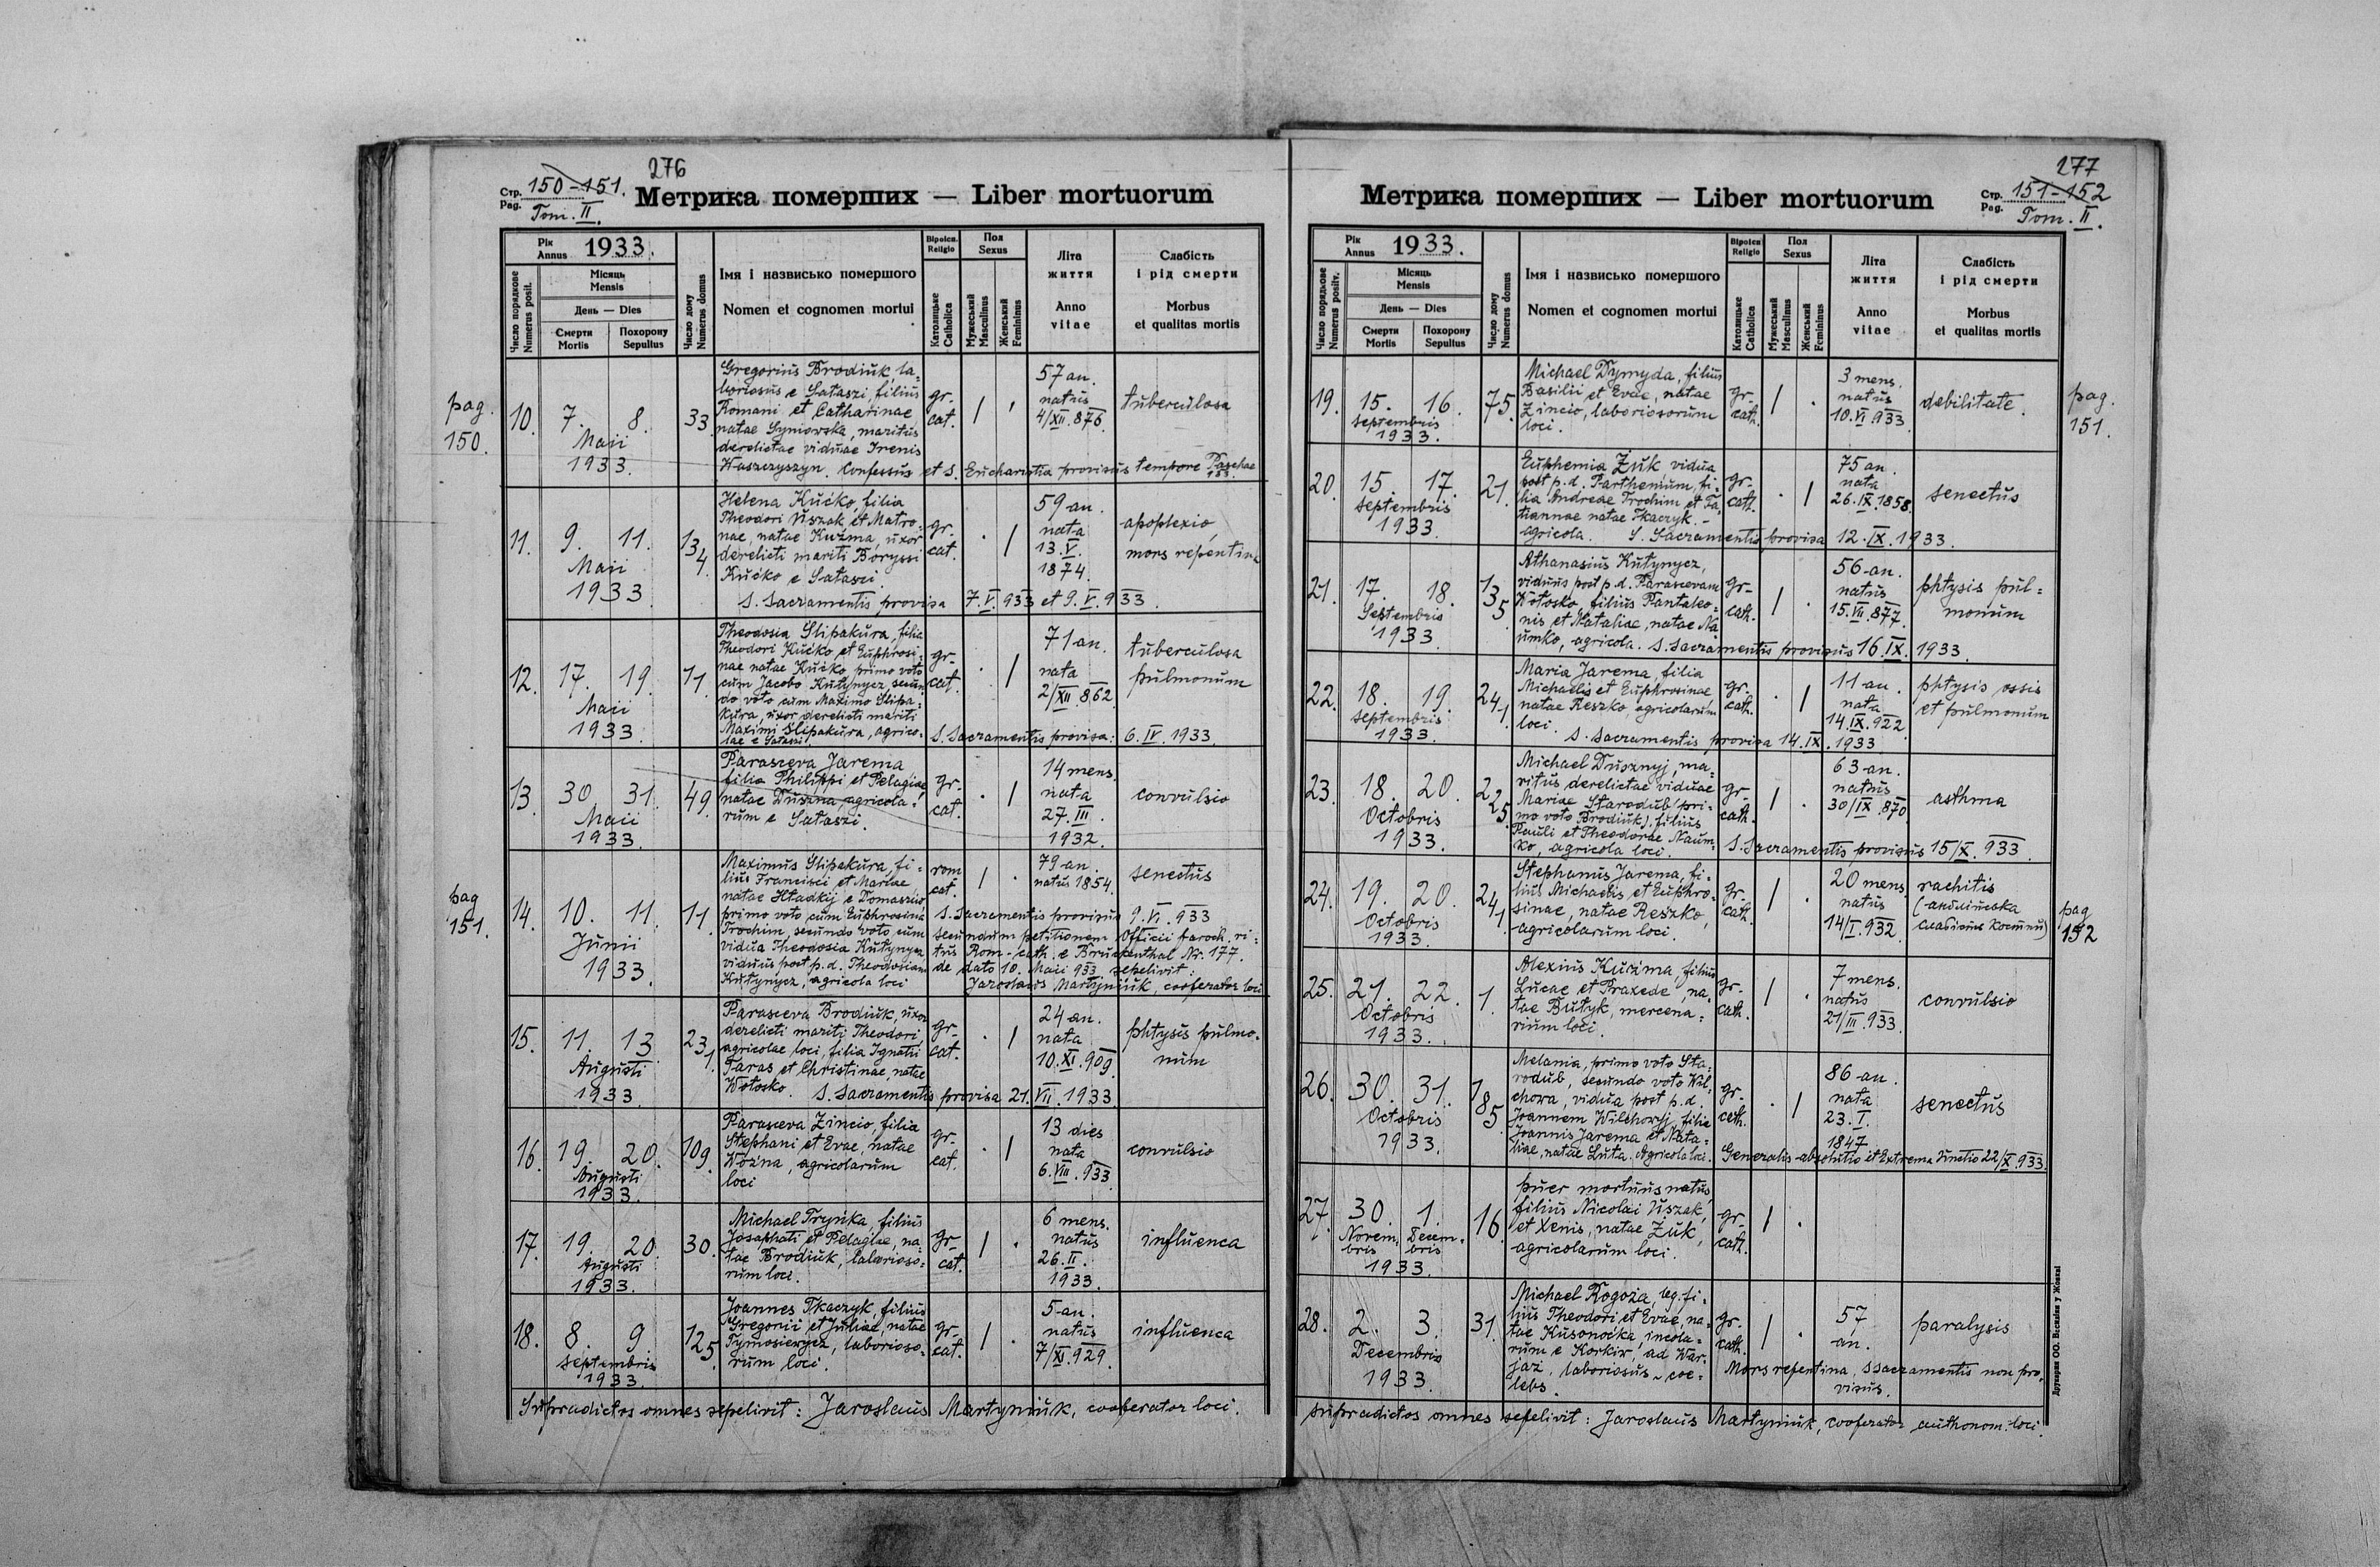 276
Стр. 150-151.
Pag. Tom. II.
Метрика померших — Liber mortuorum
Рік
Annus 1933.
Місяць
Mensis
День — Dies
Число порядкове
Numerus posit.
Смерти
Mortis
Похорону
Sepultus
Число дому
Numerus domus
Імя і назвисько помершого
Nomen et cognomen mortui
Віроісп.
Religio
Католицьке
Catholica
Пол
Sexus
Мужеський
Masculinus
Женський
Femininus
Літа
життя
Anno
vitae
Слабість
і рід смерти
Morbus
et qualitas mortis
pag.
150.
10. 7. 8. Maii 1933. 33.
Gregorius Brodiuk, la-
boriosus e Sataszi, filius
Romani et Catharinae
natae Syniowska, maritus
derelictae viduae Irenis
Waszczyszyn. Confessus et S. Eucharistia provisus tempore Paschae 933.
gr. cat. 1 .
57 an.
natus
4/XII.876.
tuberculosa
11. 9. 11. Maii 1933. 134.
Helena Kućko, filia
Theodori Uszak et Matro-
nae, natae Kuźma, uxor
derelicti mariti Boryssi
Kućko e Sataszi.
S. Sacramentis provisa 7.V.933 et 9.V.933.
gr. cat. . 1
59 an.
nata
13.V.
1874.
apoplexio,
mors repentina
12. 17. 19. Maii 1933. 11.
Theodosia Slipakura, filia
Theodori Kućko et Euphrosi-
nae natae Kućko, primo voto
cum Jacobo Kutynycz secun-
do voto cum Maximo Slipa-
kura, uxor derelicti mariti
Maximi Slipakura, agrico-
lae e Sataszi.
S. Sacramentis provisa: 6.IV.1933.
gr. cat. . 1
71 an.
nata
2/XII.862
tuberculosa
pulmonum
13. 30. 31. Maii 1933. 49.
Parasceva Jarema
filia Philippi et Pelagiae
natae Duszna, agricola-
rum e Sataszi.
gr. cat. . 1
14 mens.
nata
27.III.
1932.
convulsio
pag
151.
14. 10. 11. Junii 1933. 11.
Maximus Slipakura, fi-
lius Francisci et Mariae
natae Hładkij e Domaszów
primo voto cum Euphrosina
Trochim, secundo voto cum
vidua Theodosia Kutynycz,
viduus post p.d. Theodosiam
Kutynycz, agricola loci
rom cat. 1 .
79 an.
natus 1854.
senectus
S. Sacramentis provisus 9.VI.933
secundum petitionem Officii paroch. ri-
tus Rom-cath. e Bruckenthal Nr. 177.
de dato 10. Maii 933 sepelivit:
Jaroslaus Martyniuk, cooperator loci
15. 11. 13. Augusti 1933. 231.
Parasceva Brodiuk, uxor
derelicti mariti Theodori,
agricolae loci, filia Ignatii
Taras et Christinae, natae
Wołosko. S. Sacramentis provisa 21.VII.1933.
gr. cat. . 1
24 an.
nata
10.XI.909.
phtysis pulmo-
num
16. 19. 20. Augusti 1933. 109.
Parasceva Zincio, filia
Stephani et Evae, natae
Woźna, agricolarum
loci
gr. cat. . 1
13 dies
nata
6.VIII.933
convulsio
17. 19. 20. Augusti 1933. 30.
Michael Tryńka, filius
Josaphati et Pelagiae, na-
tae Brodiuk, laborioso-
rum loci.
gr. cat. 1 .
6 mens.
natus
26.II.
1933.
influenca
18. 8. 9. Septembris 1933. 125.
Joannes Tkaczyk, filius
Gregorii et Juliae, natae
Tymosiewycz, laborioso-
rum loci.
gr. cat. 1 .
5 an.
natus
7/XI.929.
influenca
Supradictos omnes sepelivit: Jaroslaus Martyniuk, cooperator loci.
277
Метрика померших — Liber mortuorum
Стр. 151-152
Pag. Tom. II.
Рік
Annus 1933.
Місяць
Mensis
День — Dies
Число порядкове
Numerus positv.
Смерти
Mortis
Похорону
Sepultus
Число дому
Numerus domus
Імя і назвисько помершого
Nomen et cognomen mortui
Віроісп
Religio
Католицьке
Catholica
Пол
Sexus
Мужеський
Masculinus
Женський
Femininus
Літа
життя
Anno
vitae
Слабість
і рід смерти
Morbus
et qualitas mortis
pag.
151.
19. 15. 16. Septembris 1933. 75.
Michael Dymyda, filius
Basilii et Evae, natae
Zincio, laboriosorum
loci.
gr. cath. 1 .
3 mens.
natus
10.VI.933
debilitate.
20. 15. 17. Septembris 1933. 21.
Euphemia Żuk vidua
post p.d. Parthemium, fi-
lia Andreae Trochim et Ta-
tiannae natae Tkaczyk. -
agricola. S. Sacramentis provisa 12.IX.1933.
gr. cath. . 1
75 an.
nata
26.IX.1858.
senectus
21. 17. 18. Septembris 1933. 135.
Athanasius Kutynycz,
viduus post p.d. Parascevam
Wołosko, filius Pantaleo-
nis et Nataliae, natae Na-
umko, agricola. S. Sacramentis provisus 16.IX.1933.
gr. cath. 1 .
56 an.
natus
15.VII.877.
phtysis pul-
monum
22. 18. 19. Septembris 1933. 241.
Maria Jarema, filia
Michaelis et Euphrosinae
natae Reszko, agricolarum
loci.
S. Sacramentis provisa 14.IX.1933
gr. cath. . 1
11 an.
nata
14.IX.922
phtysis ossis
et pulmonum
23. 18. 20. Octobris 1933. 225.
Michael Dusznyj, ma-
ritus derelictae viduae
Mariae Starodub (pri-
mo voto Brodiuk), filius
Pauli et Theodorae Naum-
ko, agricola loci.
S. Sacramentis provisus 15/X.933.
gr. cath. 1 .
63 an.
natus
30/IX.870
asthma
pag
152
24. 19. 20. Octobris 1933. 241.
Stephanus Jarema, fi-
lius Michaelis et Euphro-
sinae, natae Reszko,
agricolarum loci.
gr. cath. 1 .
20 mens
natus
14/I.932
rachitis
(англійська
слабість костий)
25. 21. 22. Octobris 1933. 1.
Alexius Kuźma, filius
Lucae et Praxede, na-
tae Butyk, mercena-
rium loci.
gr. cath. 1 .
7 mens.
natus
21/III.933.
convulsio
26. 30. 31. Octobris 1933. 185.
Melania, primo voto Sta-
rodub, secundo voto Wil-
chowa, vidua post p.d.
Joannem Wilchowyj, filia
Joannis Jarema et Nata-
liae, natae Luta. Agricola loci. Generalis absolutio et Extrema Unctio 22/X.933.
gr. cath. . 1
86 an.
nata
23.I.
1847
senectus
27. 30. Novembris 1. Decembris 1933. 16.
puer mortuus natus,
filius Nicolai Uszak,
et Xenis, natae Żuk,
agricolarum loci.
gr. cath. 1 .
28. 2. 3. Decembris 1933. 31.
Michael Rogoża, leg. fi-
lius Theodori et Evae, na-
tae Kusonoćka, incola-
rum e Korkiw, ad War-
jaż, laboriosus - coe-
lebs.
gr. cath. 1 .
57
an.
paralysis
Mors repentina, Ssacramentis non pro-
visus.
Supradictos omnes sepelivit: Jaroslaus Martyniuk, cooperator authonom. loci.
Друкарня ОО. Василіян у Жовкві